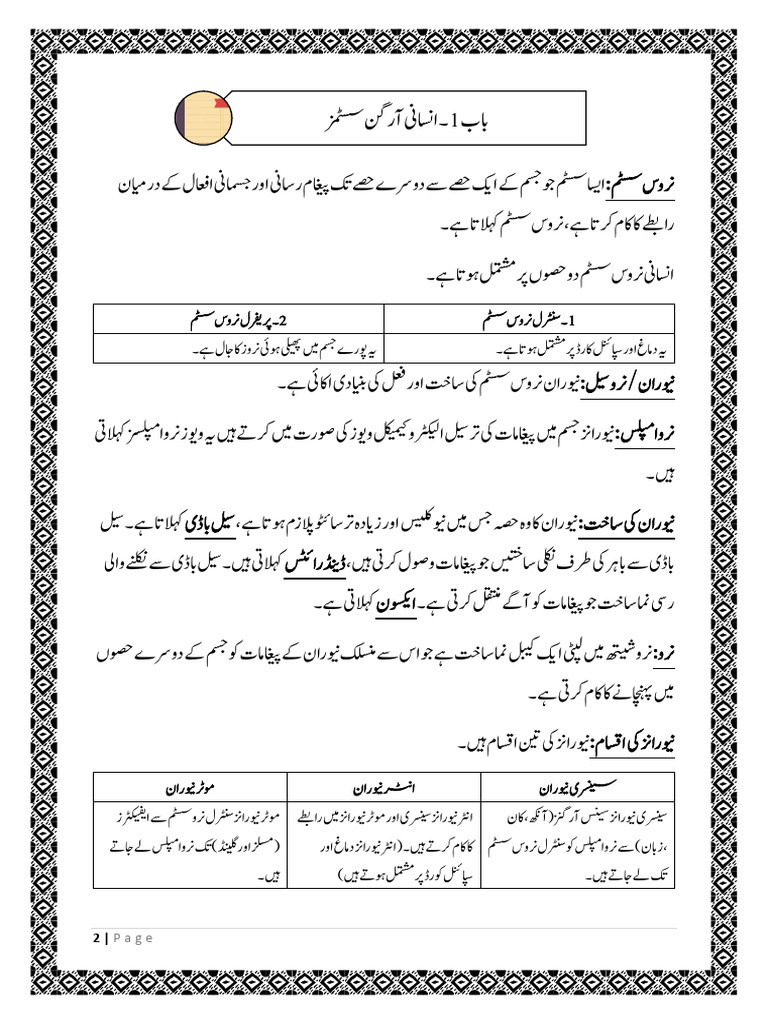 باب 1۔ انسانی آرگن سسٹمز
نروس سسٹم: ایسا سسٹم جو جسم کے ایک حصے سے دوسرے حصے تک پیغام رسانی اور جسمانی افعال کے درمیان
رابطے کا کام کرتا ہے، نروس سسٹم کہلاتا ہے۔
انسانی نروس سسٹم دو حصوں پر مشتمل ہوتا ہے۔
1۔ سنٹرل نروس سسٹم 2۔ پریفرل نروس سسٹم
یہ دماغ اور سپائنل کارڈ پر مشتمل ہوتا ہے۔ یہ پورے جسم میں پھیلی ہوئی نروز کا جال ہے۔
نیوران / نرو سیل: نیوران نروس سسٹم کی ساخت اور فعل کی بنیادی اکائی ہے۔
نروامپلس: نیورانز جسم میں پیغامات کی ترسیل الیکٹرو کیمیکل ویوز کی صورت میں کرتے ہیں یہ ویوز نروامپلسز کہلاتی
ہیں۔
نیوران کی ساخت: نیوران کا وہ حصہ جس میں نیوکلیس اور زیادہ تر سائٹوپلازم ہوتا ہے، سیل باڈی کہلاتا ہے۔ سیل
باڈی سے باہر کی طرف نکلی ساختیں جو پیغامات وصول کرتی ہیں، ڈینڈرائٹس کہلاتی ہیں۔ سیل باڈی سے نکلنے والی
رسی نما ساخت جو پیغامات کو آگے منتقل کرتی ہے۔ ایکسون کہلاتی ہے۔
نرو: نرو شیتھ میں لپٹی ایک کیبل نما ساخت ہے جو اس سے منسلک نیوران کے پیغامات کو جسم کے دوسرے حصوں
میں پہنچانے کا کام کرتی ہے۔
نیورانز کی اقسام: نیورانز کی تین اقسام ہیں۔
سینسری نیوران انٹر نیوران موٹر نیوران
سینسری نیورانز سینس آرگنز (آنکھ، کان انٹر نیورانز سینسری اور موٹر نیورانز میں رابطے موٹر نیورانز سنٹرل نرو سسٹم سے ایفیکٹرز
،زبان) سے نروامپلس کو سنٹرل نروس سسٹم کا کام کرتے ہیں۔ (انٹر نیورانز دماغ اور (مسلز اور گلینڈ) تک نروامپلس لے جاتے
تک لے جاتے ہیں۔ سپائنل کورڈ پر مشتمل ہوتے ہیں) ہیں۔
2 | Page